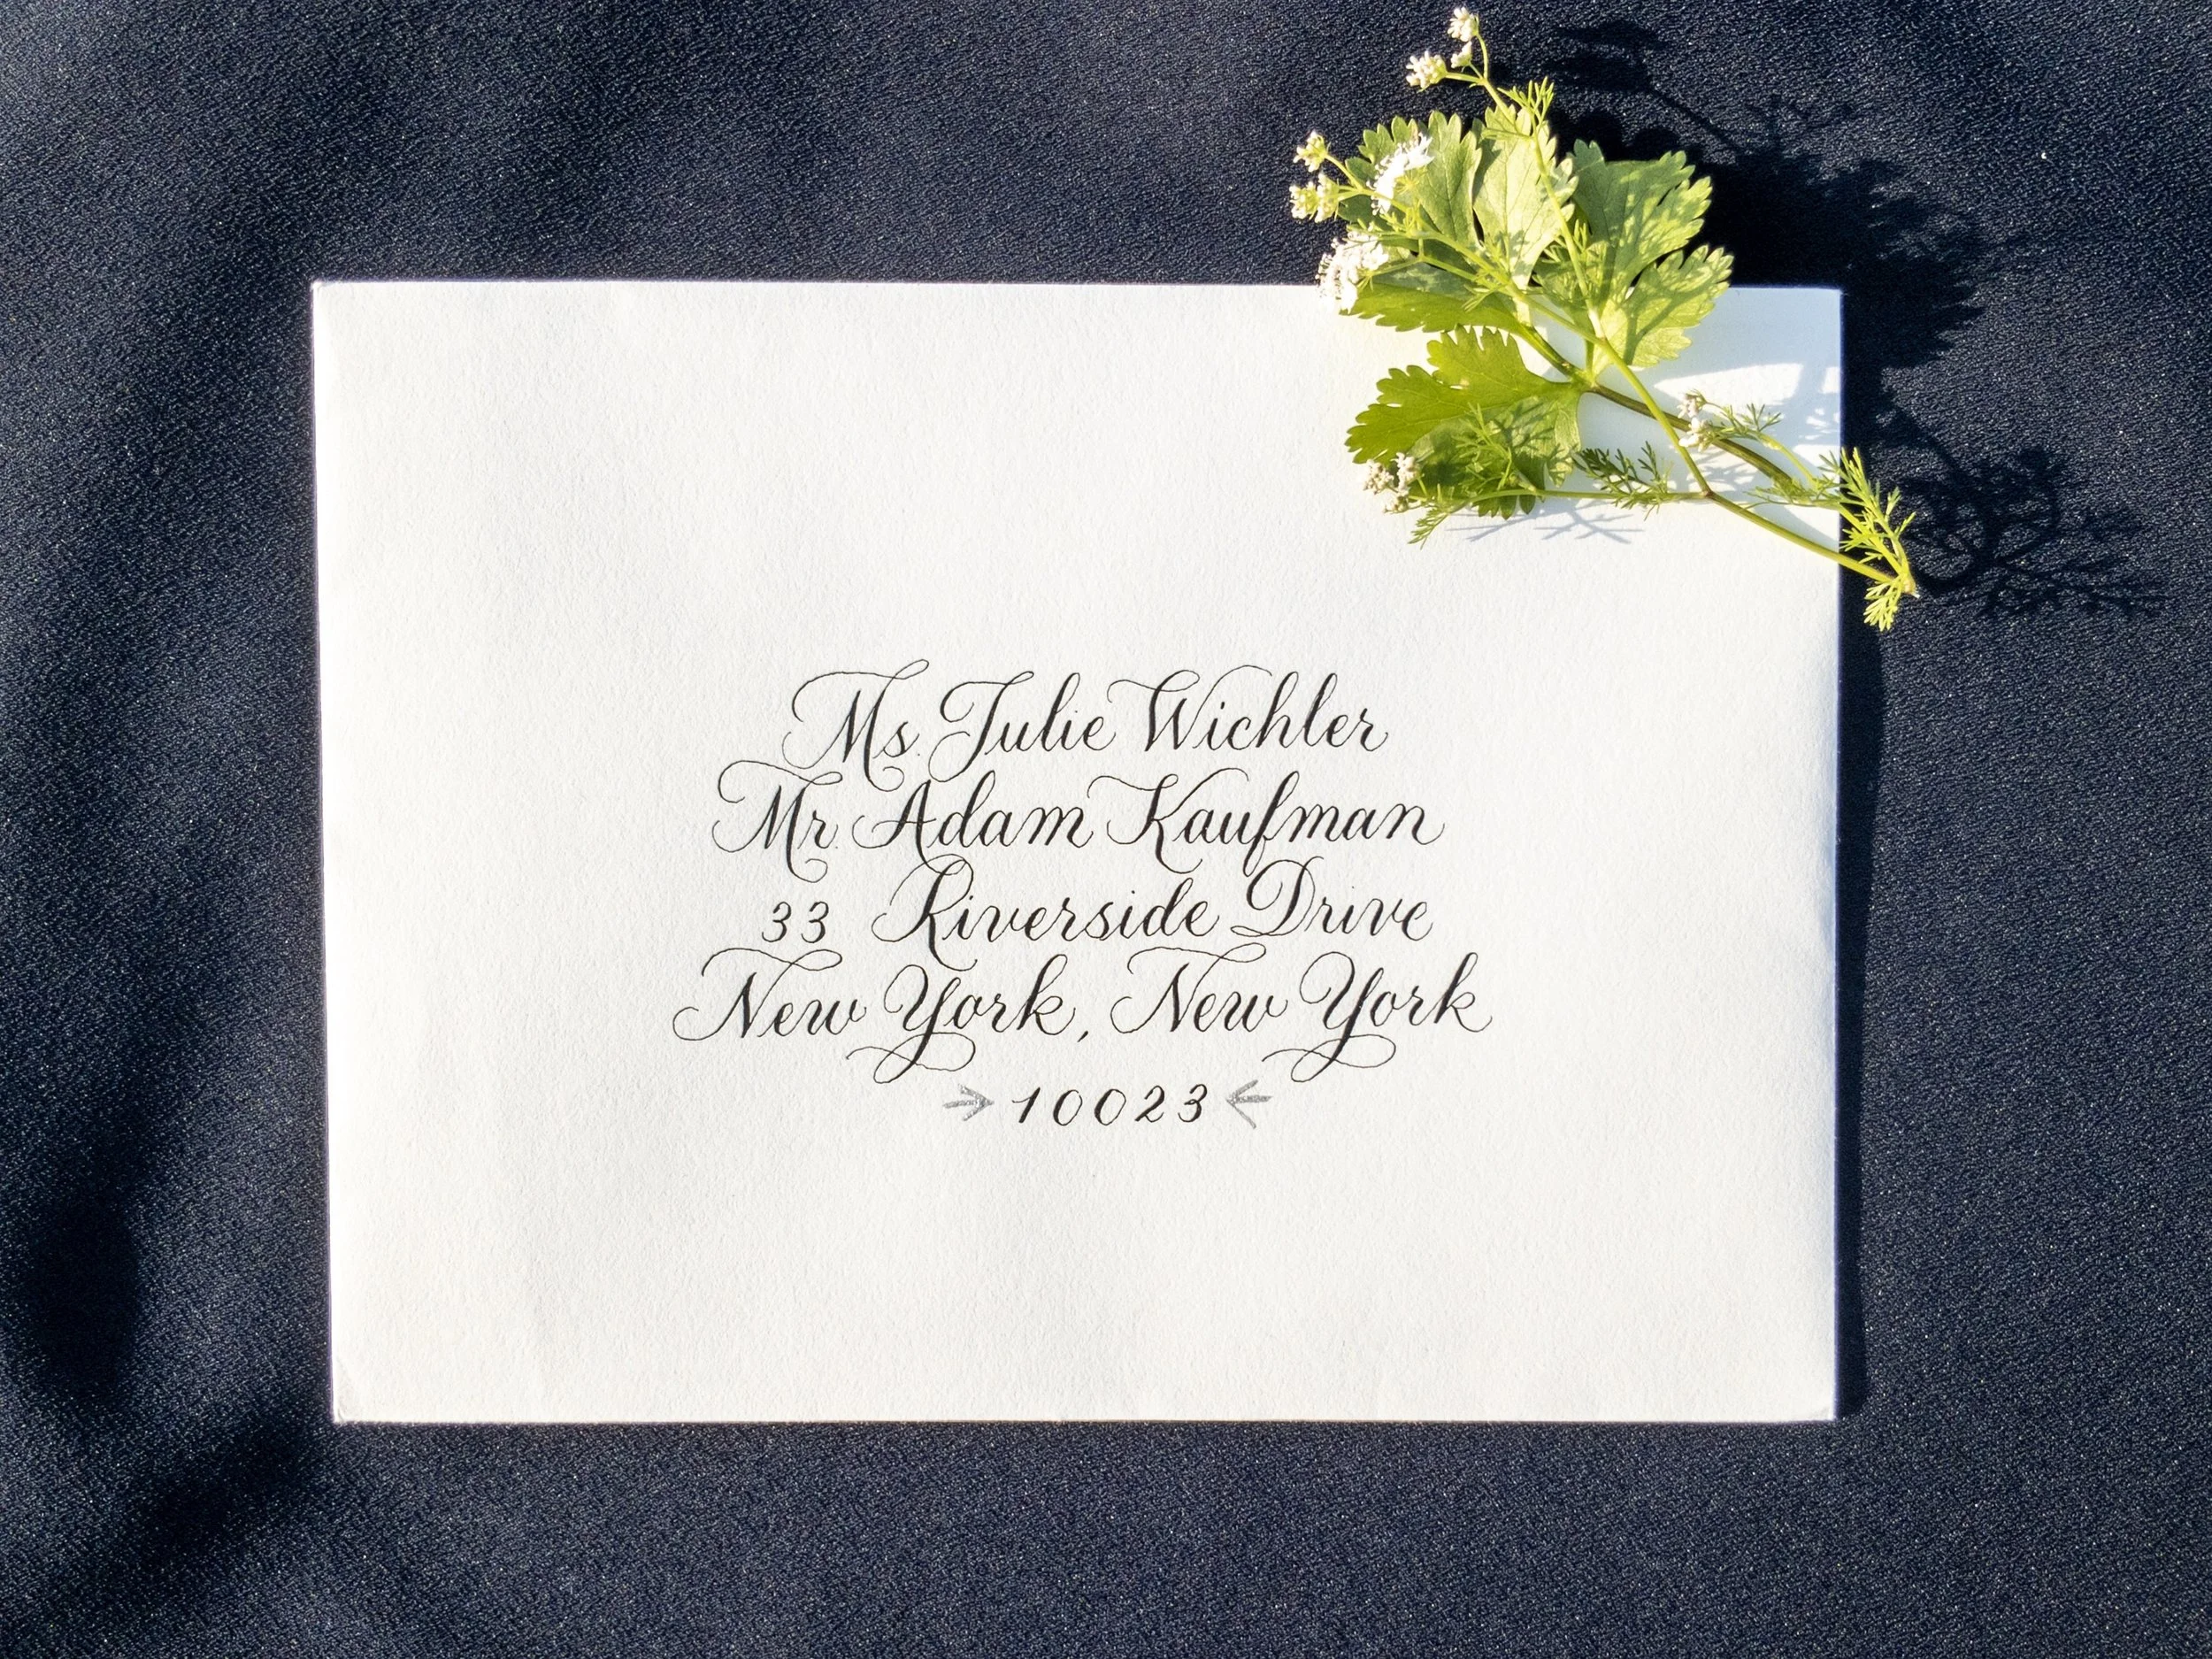 Ms. Julie Wichler
Mr. Adam Kaufman
33 Riverside Drive
New York, New York
10023